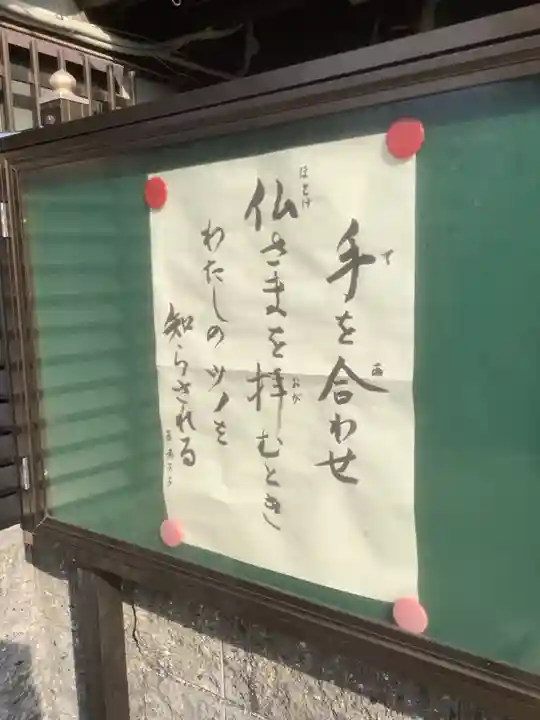 手を合わせ
仏さまを拝むとき
わたしのツノを
知らされる